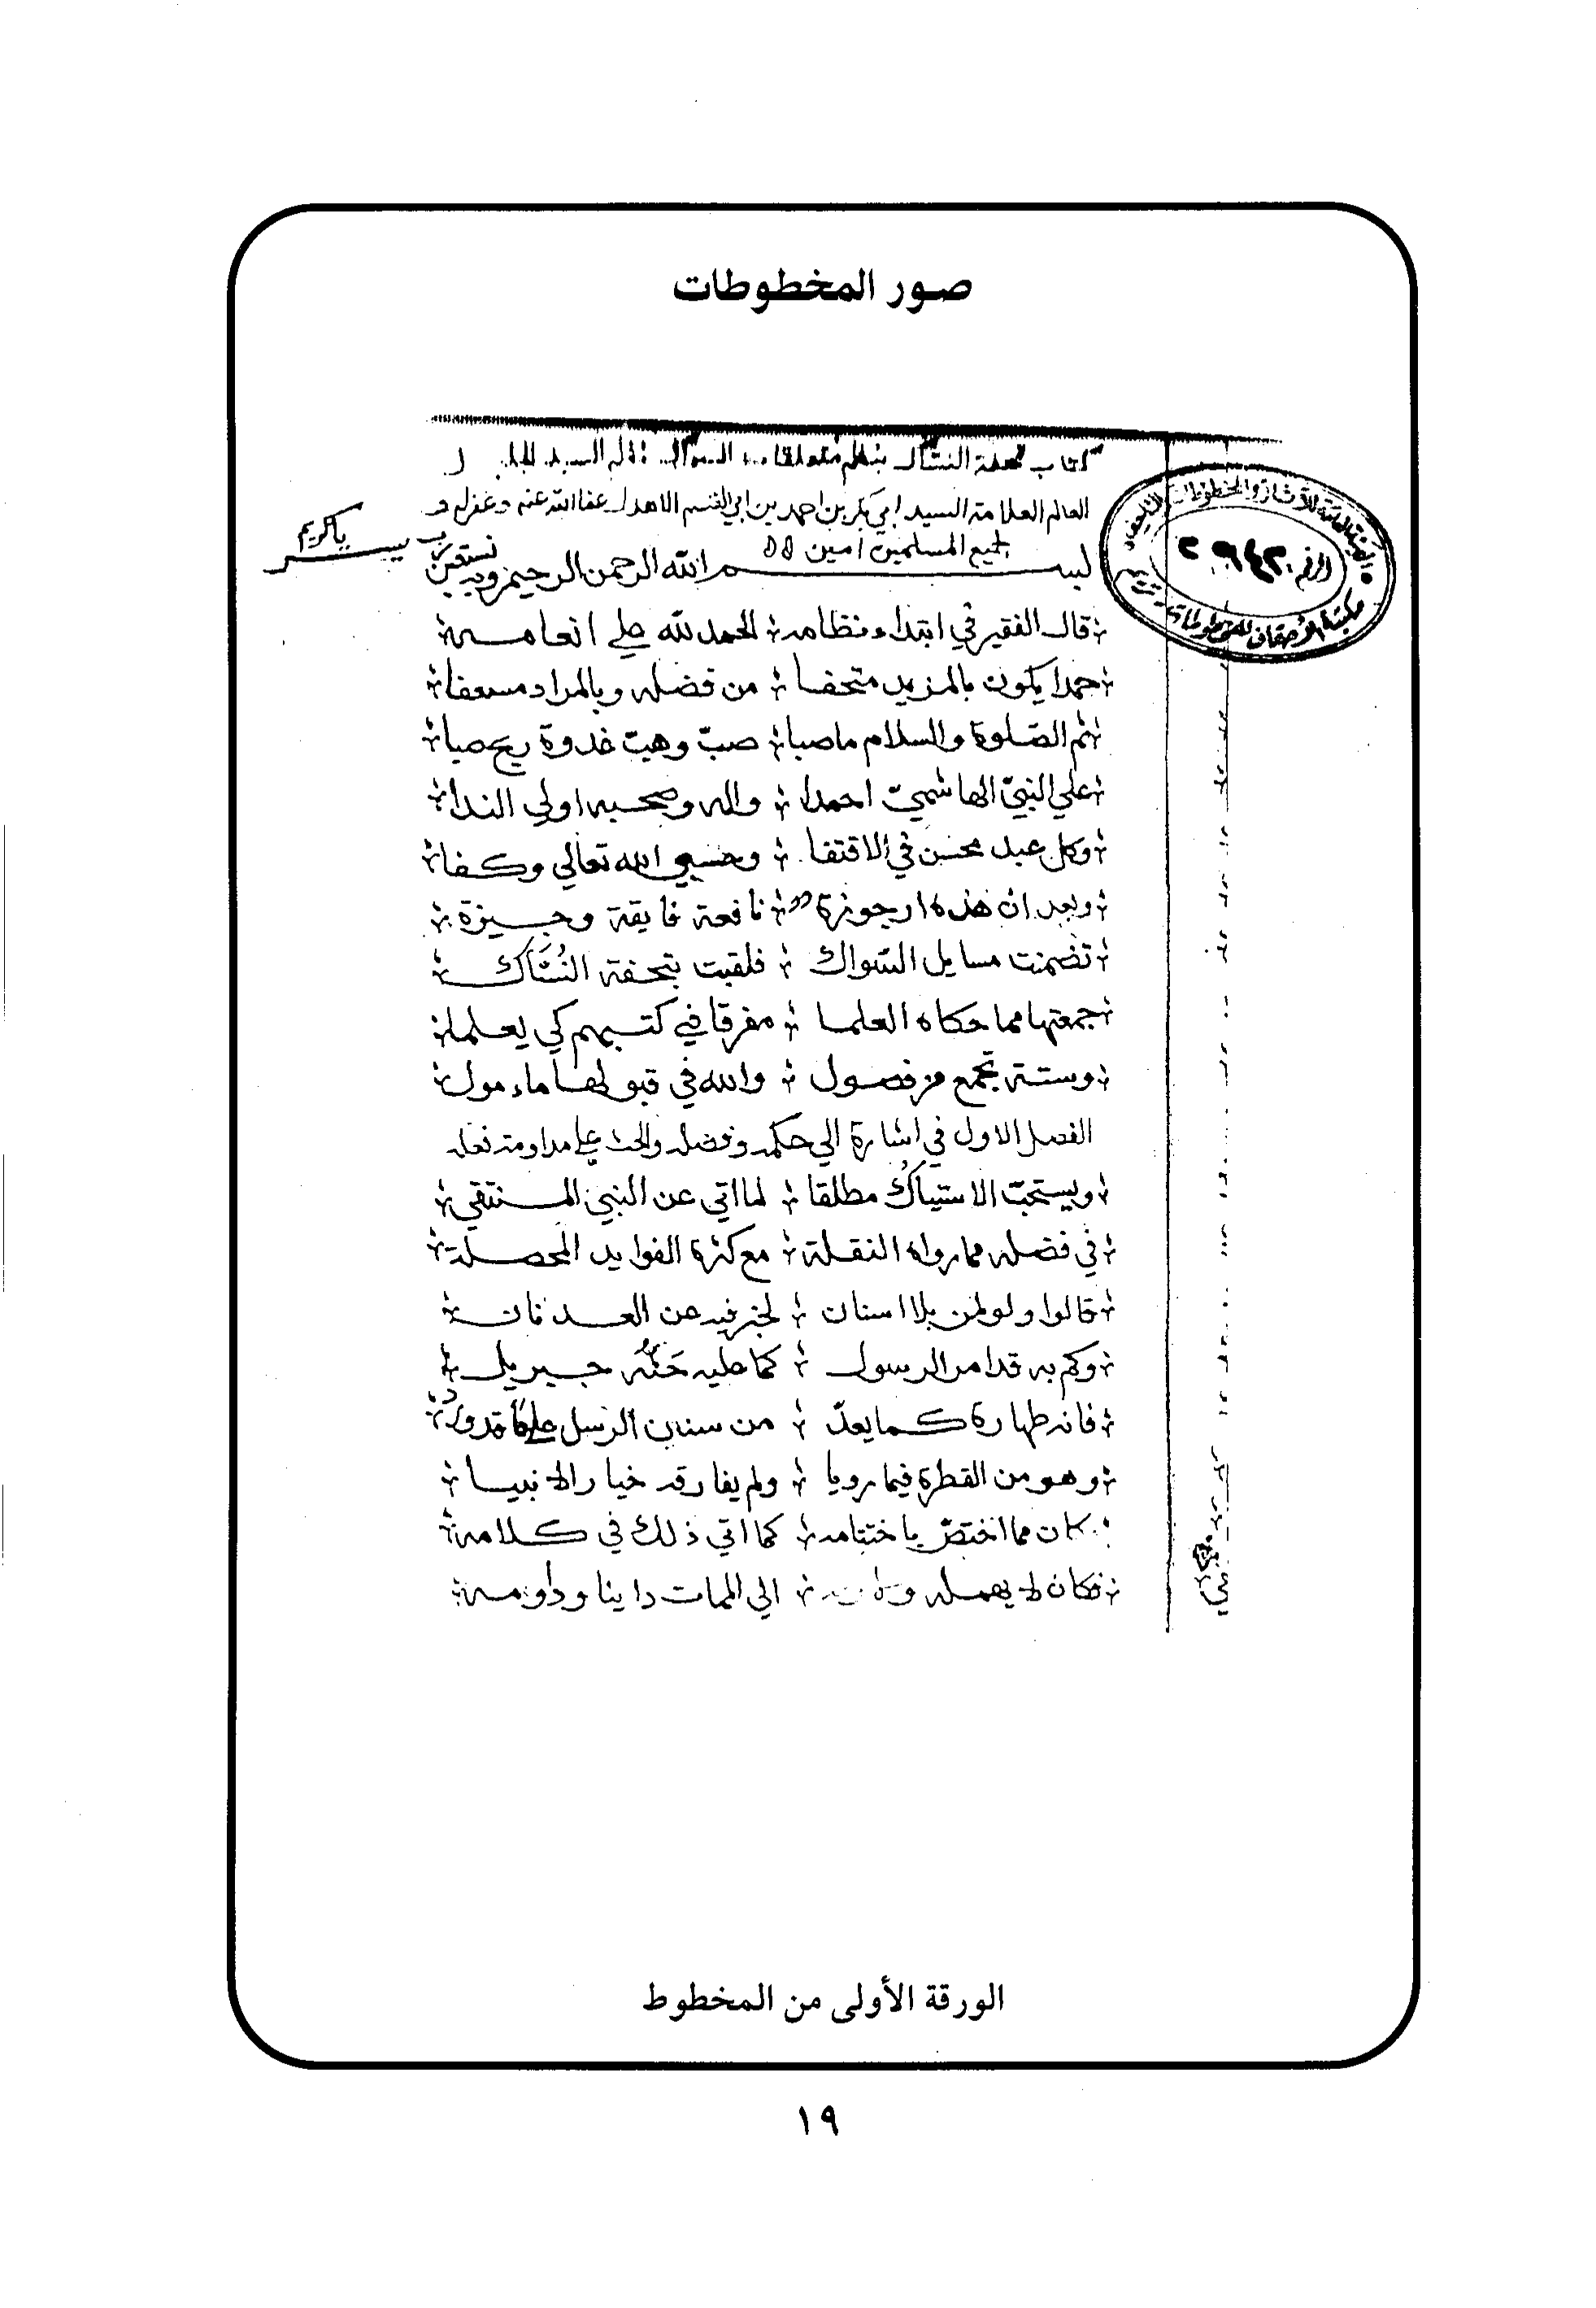 صور المخطوطات
كتاب تحفة النساك بنظم متعلقات السواك السيد
العالم العلامة السيد ابي بكر بن احمد بن ابي القسم الاهدل عفا الله عنه وغفر له و
لجميع المسلمين امين
بسم الله الرحمن الرحيم وبه نستعين
رب يسر يا كريم
الرقم ٢٩٤٢
مكتبة الأحقاف للمخطوطات تريم
قال الفقير في ابتداء نظامه الحمد لله علي انعامه
حمدا يكون بالمزيد متحفا من فضله وبالمراد مسعفا
ثم الصلوة والسلام ما صبا صبّ وهبت غدوة ريح صبا
علي النبيّ الهاشميّ احمدا واله وصحبه اولي الندا
وكل عبد محسن في الاقتفا وحسبي الله تعالي وكفا
وبعد ان هذه ارجوزة نافعة فايقة وجيزة
تضمنت مسايل السواك فلقبت بتحفة النُسَّاك
جمعتها مما حكاه العلما مفرقا في كتبهم كي يعلما
وستة تجمع من فصول والله في قبولها مامول
الفصل الاول في اشارة الي حكمه وفضله والحث علي مداومة فعله
ويستحبّ الاستياكُ مطلقا لما اتي عن النبي المنتقي
في فضله مما رواه النقلة مع كثرة الفوايد المحصلة
قالوا ولو لمن بلا اسنان لخبر فيه عن العدنان
وكم به قد امر الرسول كما عليه حَثَّه جبريل
فانه طهارة كما يعدّ من سنن الرسل علي ما قد ورد
وهو من الفطرة فيما رويا ولم يفارقه خيار الانبيا
كان مما اختصّ باختتامه كما اتي ذلك في كلامه
فكان لا يهمله الي الممات داينا وداومه
الورقة الأولى من المخطوط
١٩